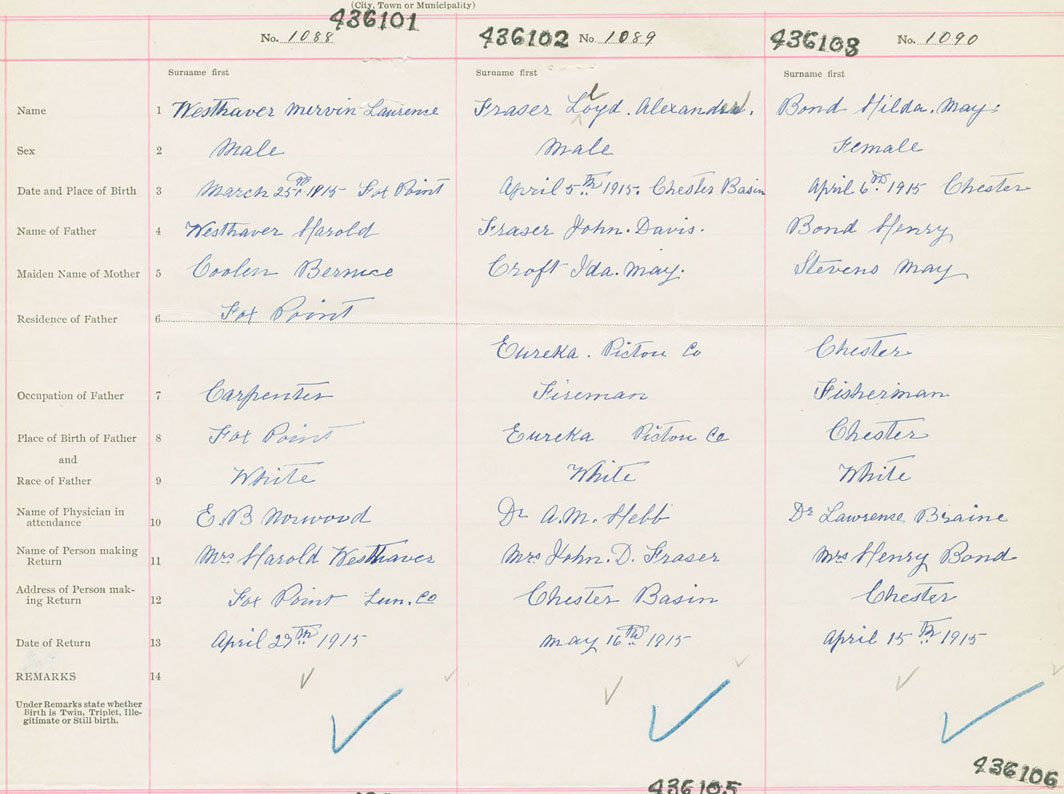 (City, Town or Municipality)
436101
No. 1088
436102 No. 1089
436103 No. 1090
Surname first Surname first Surname first
Name 1 Westhaver Mervin Laurence Fraser Lloyd. Alexander. Bond Hilda. May.
Sex 2 Male Male Female
Date and Place of Birth 3 March 25th 1915 Fox Point April 5th 1915. Chester Basin April 6th 1915 Chester
Name of Father 4 Westhaver Harold Fraser John. Davis. Bond Henry
Maiden Name of Mother 5 Coolen Bernice Croft Ida. May. Stevens May
Residence of Father 6 Fox Point
Eureka. Pictou Co Chester
Occupation of Father 7 Carpenter Fireman Fisherman
Place of Birth of Father 8 Fox Point Eureka Pictou Co Chester
and
Race of Father 9 White White White
Name of Physician in
attendance 10 E. B Norwood Dr A. M. Hebb Dr Lawrence Braine
Name of Person making
Return 11 Mrs Harold Westhaver Mrs John. D. Fraser Mrs Henry Bond
Address of Person mak-
ing Return 12 Fox Point Lun. Co Chester Basin Chester
Date of Return 13 April 29th 1915 May 16th 1915 April 15th 1915
REMARKS 14
Under Remarks state whether
Birth is Twin, Triplet, Ille-
gitimate or Still birth.
436106
436105